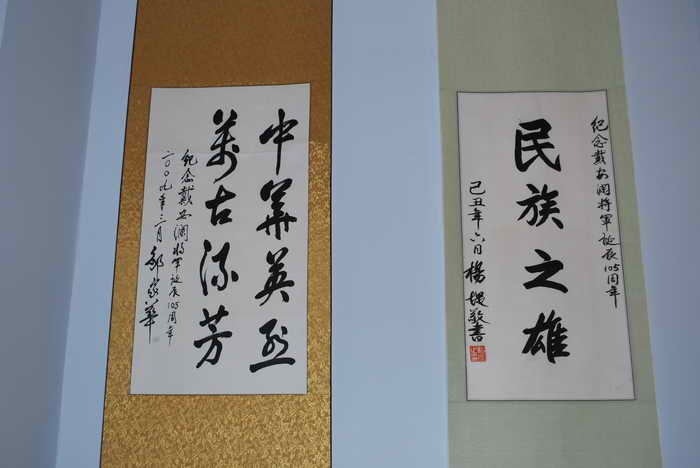 中華英烈
萬古流芳
纪念戴安澜将军诞辰105周年
二〇〇九年三月 邹家華
纪念戴安澜将軍诞辰105周年
民族之雄
己丑年六月 楊堤敬書